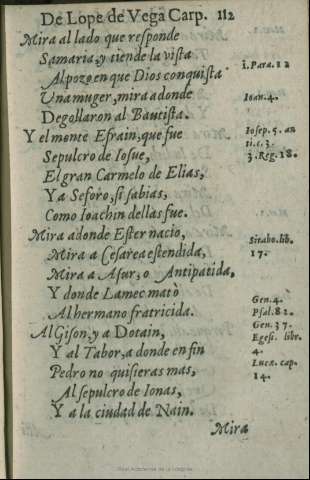 De Lope de Vega Carp. 112
Mira al lado que responde
Samaria, y tiende la vista
Al pozo en que Dios conquista
Una muger, mira adonde
Degollaron al Bautista.
Y el monte Efrain, que fue
Sepulcro de Iosue,
El gran Carmelo de Elias,
Y a Seforo, si sabias,
Como Ioachin dellas fue.
Mira adonde Ester nacio,
Mira a Cesarea estendida,
Mira a Asur, o Antipatida,
Y donde Lamec matò
Al hermano fratricida.
Al Gison, y a Dotain,
Y al Tabor, a donde en fin
Pedro no quisieras mas,
Al sepulcro de Ionas,
Y a la ciudad de Nain.
Mira
1. Para. 12
Ioan. 4.
Iosep. 5. an
ti. c. 3.
3. Reg. 18.
Strabo. lib.
17.
Gen. 4.
Psal. 82.
Gen. 37.
Egesi. libr.
4.
Lucæ. cap.
14.